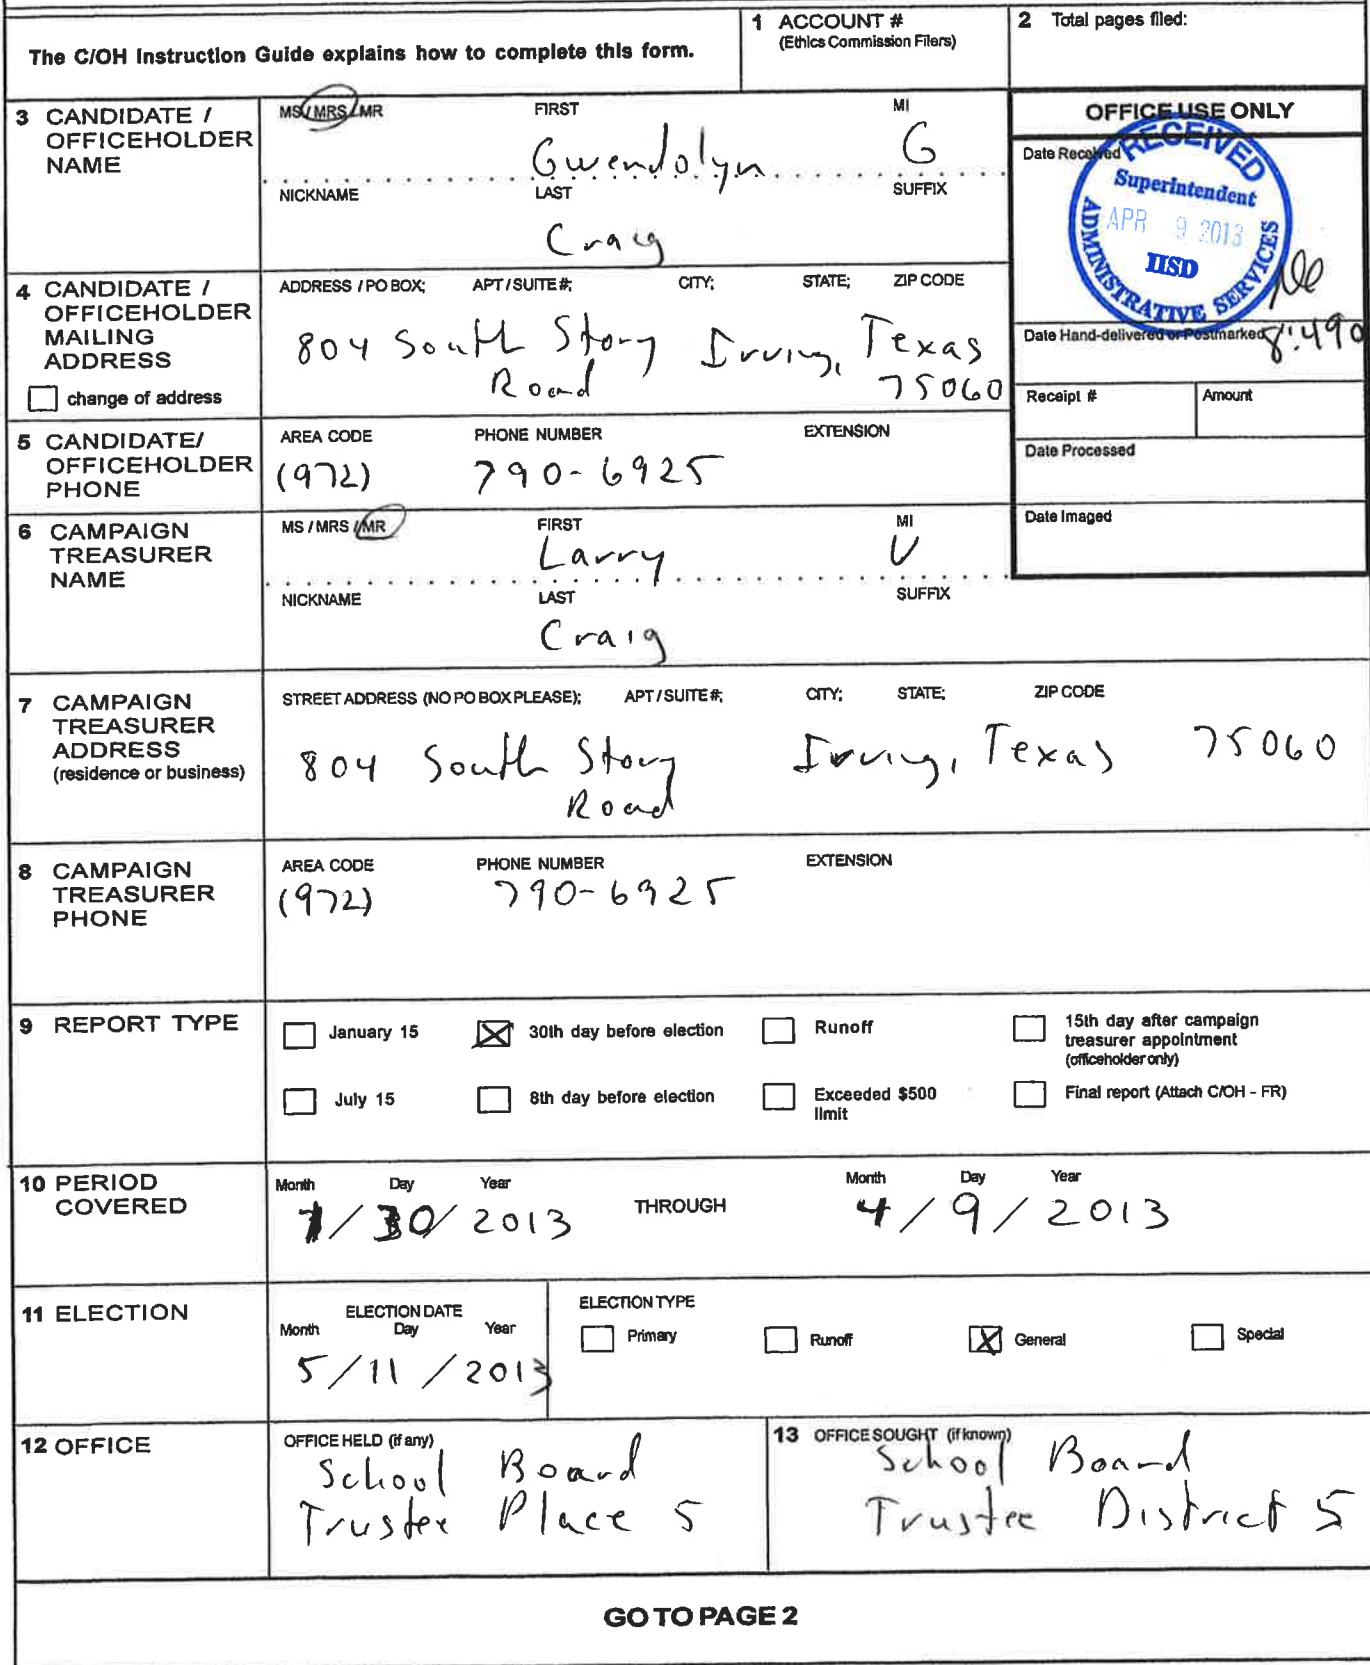 The C/OH Instruction Guide explains how to complete this form.
1 ACCOUNT #
(Ethics Commission Filers)
2 Total pages filed:
3 CANDIDATE / OFFICEHOLDER NAME
MS / MRS / MR FIRST MI
Gwendolyn G
NICKNAME LAST SUFFIX
Craig
OFFICE USE ONLY
Date Received
RECEIVED
Superintendent
APR 9 2013
IISD
ADMINISTRATIVE SERVICES
Date Hand-delivered or Postmarked
Receipt # Amount
Date Processed
Date Imaged
4 CANDIDATE / OFFICEHOLDER MAILING ADDRESS
change of address
ADDRESS / PO BOX; APT / SUITE #; CITY; STATE; ZIP CODE
804 South Story Irving, Texas
Road 75060
5 CANDIDATE/ OFFICEHOLDER PHONE
AREA CODE PHONE NUMBER EXTENSION
(972) 790-6925
6 CAMPAIGN TREASURER NAME
MS / MRS / MR FIRST MI
Larry V
NICKNAME LAST SUFFIX
Craig
7 CAMPAIGN TREASURER ADDRESS
(residence or business)
STREET ADDRESS (NO PO BOX PLEASE); APT / SUITE #; CITY; STATE; ZIP CODE
804 South Story Irving, Texas 75060
Road
8 CAMPAIGN TREASURER PHONE
AREA CODE PHONE NUMBER EXTENSION
(972) 790-6925
9 REPORT TYPE
January 15 30th day before election Runoff 15th day after campaign treasurer appointment (officeholder only)
July 15 8th day before election Exceeded $500 limit Final report (Attach C/OH - FR)
10 PERIOD COVERED
Month Day Year THROUGH Month Day Year
1/30/2013 4/9/2013
11 ELECTION
ELECTION DATE
Month Day Year
5/11/2013
ELECTION TYPE
Primary Runoff General Special
12 OFFICE
OFFICE HELD (if any)
School Board
Trustee Place 5
13 OFFICE SOUGHT (if known)
School Board
Trustee District 5
GO TO PAGE 2